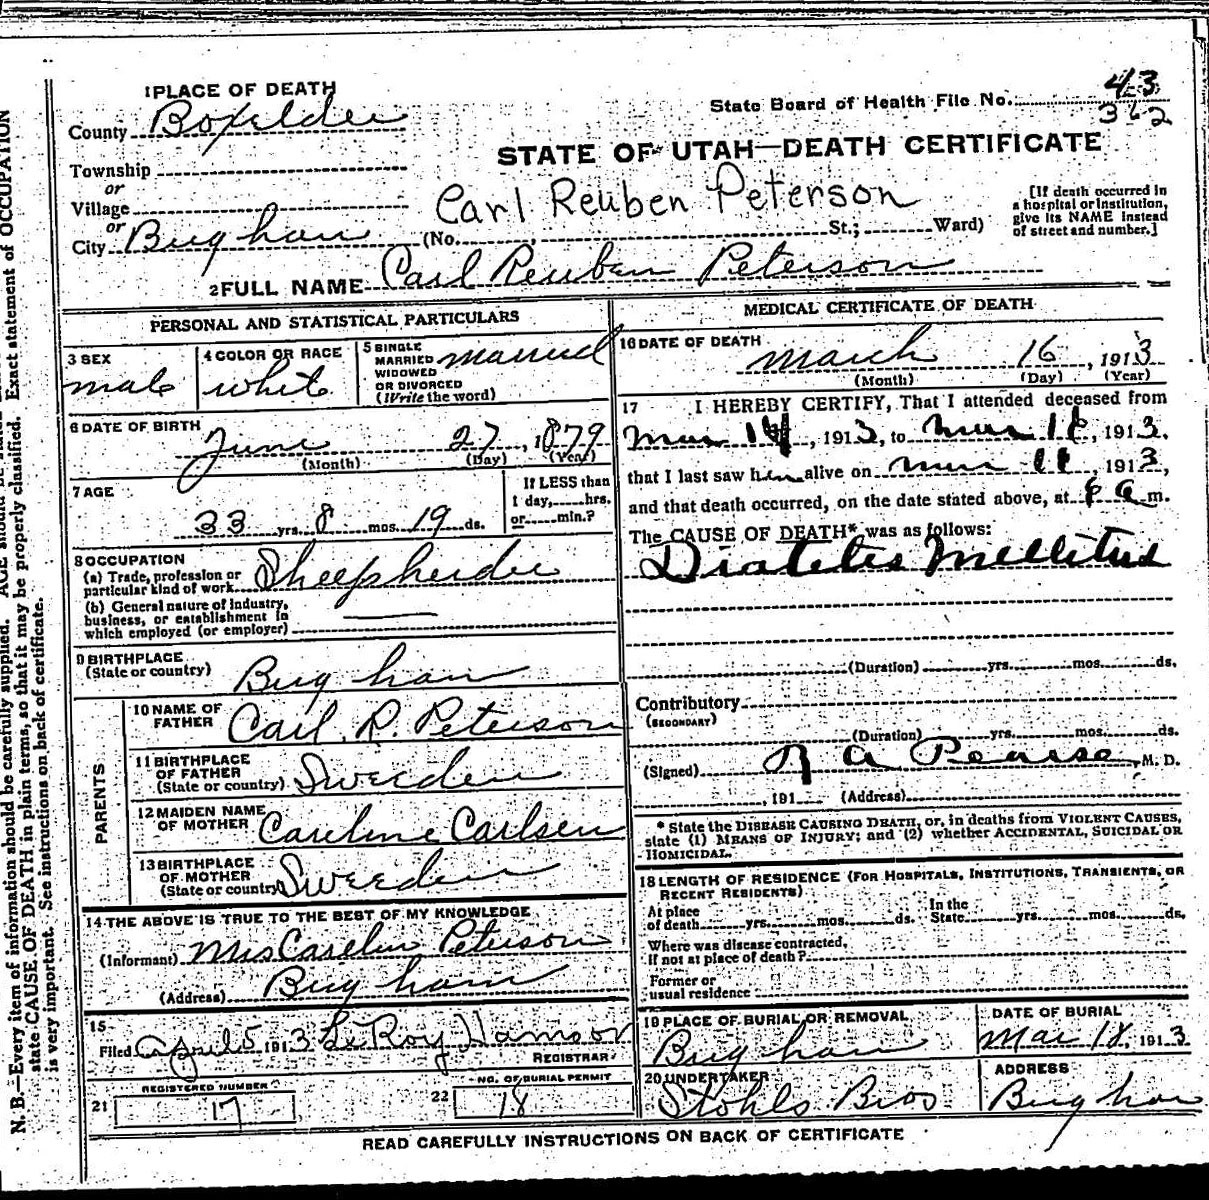 1 PLACE OF DEATH
County Boxelder
Township
or
Village
or
City Brigham
State Board of Health File No. 43
362
STATE OF UTAH—DEATH CERTIFICATE
Carl Reuben Peterson
(No. , St.; Ward)
[If death occurred in
a hospital or institution,
give its NAME instead
of street and number.]
2 FULL NAME Carl Reuben Peterson
PERSONAL AND STATISTICAL PARTICULARS
3 SEX
male
4 COLOR OR RACE
white
5 SINGLE
MARRIED
WIDOWED
OR DIVORCED
(Write the word)
married
6 DATE OF BIRTH
June 27, 1879
(Month) (Day) (Year)
7 AGE
33 yrs. 8 mos. 19 ds.
If LESS than
1 day, hrs.
or min.?
8 OCCUPATION
(a) Trade, profession or
particular kind of work Sheepherder
(b) General nature of industry,
business, or establishment in
which employed (or employer)
9 BIRTHPLACE
(State or country) Brigham
PARENTS
10 NAME OF
FATHER Carl R. Peterson
11 BIRTHPLACE
OF FATHER
(State or country) Sweeden
12 MAIDEN NAME
OF MOTHER Careline Carlsen
13 BIRTHPLACE
OF MOTHER
(State or country) Sweeden
14 THE ABOVE IS TRUE TO THE BEST OF MY KNOWLEDGE
(Informant) Mrs Carelin Peterson
(Address) Brigham
15
Filed April 5 1913 LeRoy
REGISTRAR
REGISTERED NUMBER
21 17
NO. OF BURIAL PERMIT
22 18
MEDICAL CERTIFICATE OF DEATH
16 DATE OF DEATH
March 16, 1913
(Month) (Day) (Year)
17 I HEREBY CERTIFY, That I attended deceased from
Mar , 1913, to Mar , 1913,
that I last saw him alive on Mar , 1913,
and that death occurred, on the date stated above, at a m.
The CAUSE OF DEATH* was as follows:
Diabetes Mellitus
(Duration) yrs. mos. ds.
Contributory
(SECONDARY)
(Duration) yrs. mos. ds.
(Signed) R A Pearse, M. D.
, 191 (Address)
* State the DISEASE CAUSING DEATH, or, in deaths from VIOLENT CAUSES,
state (1) MEANS OF INJURY; and (2) whether ACCIDENTAL, SUICIDAL OR
HOMICIDAL.
18 LENGTH OF RESIDENCE (FOR HOSPITALS, INSTITUTIONS, TRANSIENTS, OR
RECENT RESIDENTS)
At place
of death yrs. mos. ds.
In the
State yrs. mos. ds.
Where was disease contracted,
if not at place of death?
Former or
usual residence
19 PLACE OF BURIAL OR REMOVAL
Brigham
DATE OF BURIAL
Mar 18, 1913
20 UNDERTAKER
Stohls Bros
ADDRESS
Brigham
READ CAREFULLY INSTRUCTIONS ON BACK OF CERTIFICATE
N. B.—Every item of information should be carefully supplied. AGE should be
state CAUSE OF DEATH in plain terms, so that it may be properly classified. Exact statement of OCCUPATION
is very important. See instructions on back of certificate.